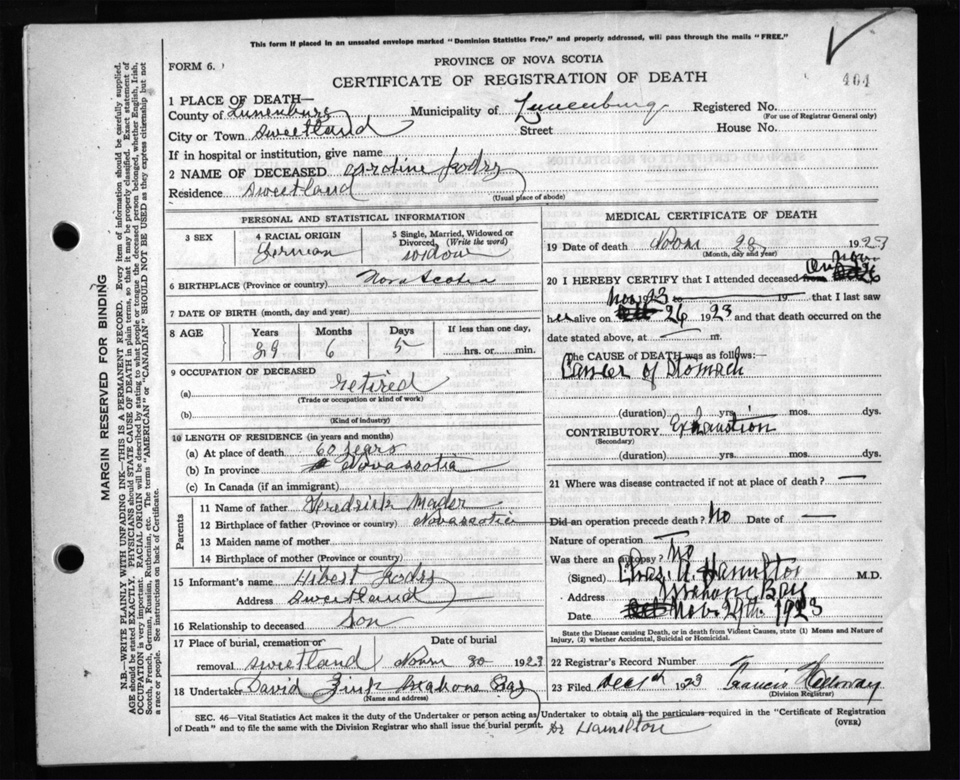 This form if placed in an unsealed envelope marked "Dominion Statistics Free," and properly addressed, will pass through the mails "FREE."
PROVINCE OF NOVA SCOTIA
FORM 6.
CERTIFICATE OF REGISTRATION OF DEATH
404
1 PLACE OF DEATH—
County of Lunenburg Municipality of Lunenburg Registered No.
(For use of Registrar General only)
City or Town Sweetland Street House No.
If in hospital or institution, give name
2 NAME OF DECEASED Caroline
Residence Sweetland
(Usual place of abode)
PERSONAL AND STATISTICAL INFORMATION
3 SEX 4 RACIAL ORIGIN 5 Single, Married, Widowed or Divorced (Write the word)
German widow
6 BIRTHPLACE (Province or country) Nova Scotia
7 DATE OF BIRTH (month, day and year)
8 AGE Years Months Days If less than one day,
6 5 hrs. or min.
9 OCCUPATION OF DECEASED
(a) retired
(Trade or occupation or kind of work)
(b)
(Kind of industry)
10 LENGTH OF RESIDENCE (in years and months)
(a) At place of death 60 years
(b) In province Novascotia
(c) In Canada (if an immigrant)
Parents
11 Name of father Fredrick Mader
12 Birthplace of father (Province or country) Novascotia
13 Maiden name of mother
14 Birthplace of mother (Province or country)
15 Informant's name Hibert
Address Sweetland
16 Relationship to deceased Son
17 Place of burial, cremation or removal Sweetland Date of burial Novm 30 1923
18 Undertaker David Zink Mahone Bay
(Name and address)
MEDICAL CERTIFICATE OF DEATH
19 Date of death Novm 28 1923
(Month, day and year)
20 I HEREBY CERTIFY that I attended deceased from On Nov. 26
Nov 1923 to 19 that I last saw
her alive on 26 1923 and that death occurred on the
date stated above, at m.
The CAUSE OF DEATH was as follows:—
Cancer of Stomach
(duration) yrs. mos. dys.
CONTRIBUTORY Exhaustion
(Secondary)
(duration) yrs. mos. dys.
21 Where was disease contracted if not at place of death? —
Did an operation precede death? No Date of —
Nature of operation —
Was there an autopsy? No
(Signed) Chas. A. Hamilton M.D.
Address Mahone Bay
Date Nov. 29th. 1923
State the Disease causing Death, or in death from Violent Causes, state (1) Means and Nature of Injury, (2) whether Accidental, Suicidal or Homicidal.
22 Registrar's Record Number
23 Filed 1923 Francis
(Division Registrar)
SEC. 46—Vital Statistics Act makes it the duty of the Undertaker or person acting as Undertaker to obtain all the particulars required in the "Certificate of Registration
of Death" and to file the same with the Division Registrar who shall issue the burial permit. Dr Hamilton (OVER)
MARGIN RESERVED FOR BINDING
N.B.—WRITE PLAINLY WITH UNFADING INK—THIS IS A PERMANENT RECORD. Every item of information should be carefully supplied.
AGE should be stated EXACTLY. PHYSICIANS should STATE CAUSE OF DEATH in plain terms, so that it may be properly classified. Exact statement of
OCCUPATION is very important. RACIAL ORIGIN will be described by stating to what people or tongue the deceased person belonged, whether English, Irish,
Scotch, French, German, Russian, Ruthenian, etc. The terms "AMERICAN" or "CANADIAN" SHOULD NOT BE USED as they express citizenship but not
a race or people. See instructions on back of Certificate.